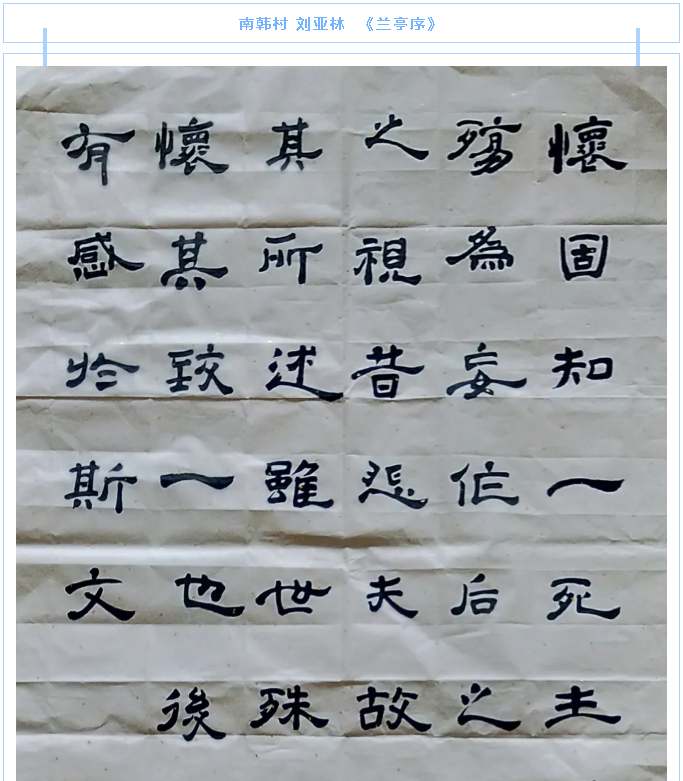 南韩村 刘亚林 《兰亭序》
懷固知一死生
殤為妄作后之
之視昔悲夫故
其所述雖世殊
懷其致一也後
有感於斯文